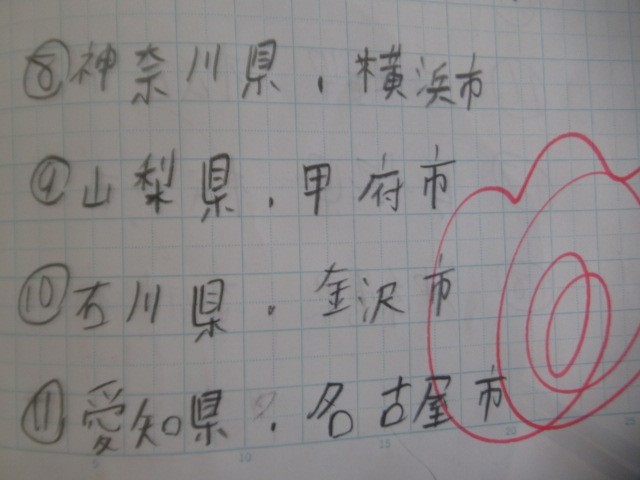 ⑧神奈川県・横浜市
⑨山梨県・甲府市
⑩石川県・金沢市
⑪愛知県・名古屋市
5 10 15 20 25